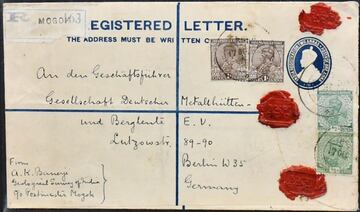 MOGOK
REGISTERED LETTER.
THE ADDRESS MUST BE WRITTEN
An den Geschäftsführer
Gesellschaft Deutscher Metallhütten-
und Bergleute E. V.
Lutzowstr. 89-90
Berlin W35
Germany
From
A. K. Banerji
Geological Survey of India
c/o Postmaster Mogok